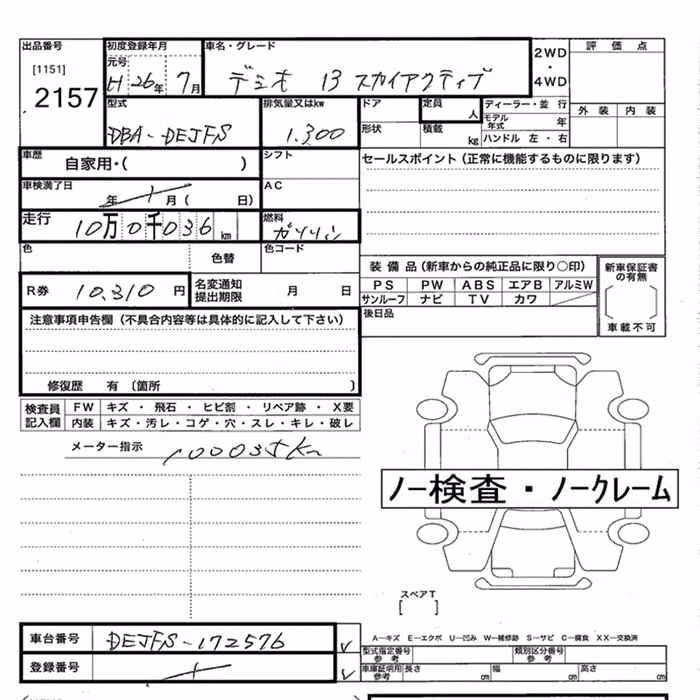 出品番号 初度登録年月 車名・グレード 2WD ・ 4WD 評価点
[1151] 元号
2157 H26年 7月 デミオ 13 スカイアクティブ
外装 内装
型式 排気量又はkw ドア 定員 人 ディーラー・並行
DBA-DEJFS 1.300 形状 積載 kg モデル年式 年
ハンドル 左・右
車歴 自家用・( ) シフト セールスポイント(正常に機能するものに限ります)
車検満了日 年 月( 日) AC
走行 10万0千036km 燃料 ガソリン
色 色替 色コード
装備品(新車からの純正品に限り○印) 新車保証書の有無
R券 10,310円 名変通知提出期限 月 日 PS PW ABS エアB アルミW
サンルーフ ナビ TV カワ
車載不可
注意事項申告欄(不具合内容等は具体的に記入して下さい) 後日品
修復歴 有 〔箇所 〕
検査員記入欄 FW キズ・飛石・ヒビ割・リペア跡・X要
内装 キズ・汚レ・コゲ・穴・スレ・キレ・破レ
メーター指示 100035km
ノー検査・ノークレーム
スペアT
[ ]
車台番号 DEJFS-172576 A―キズ E―エクボ U―凹み W―補修跡 S―サビ C―腐食 XX―交換済
型式指定番号 参考 類別区分番号 参考
登録番号 車庫証明用参考 長さ cm 幅 cm 高さ cm